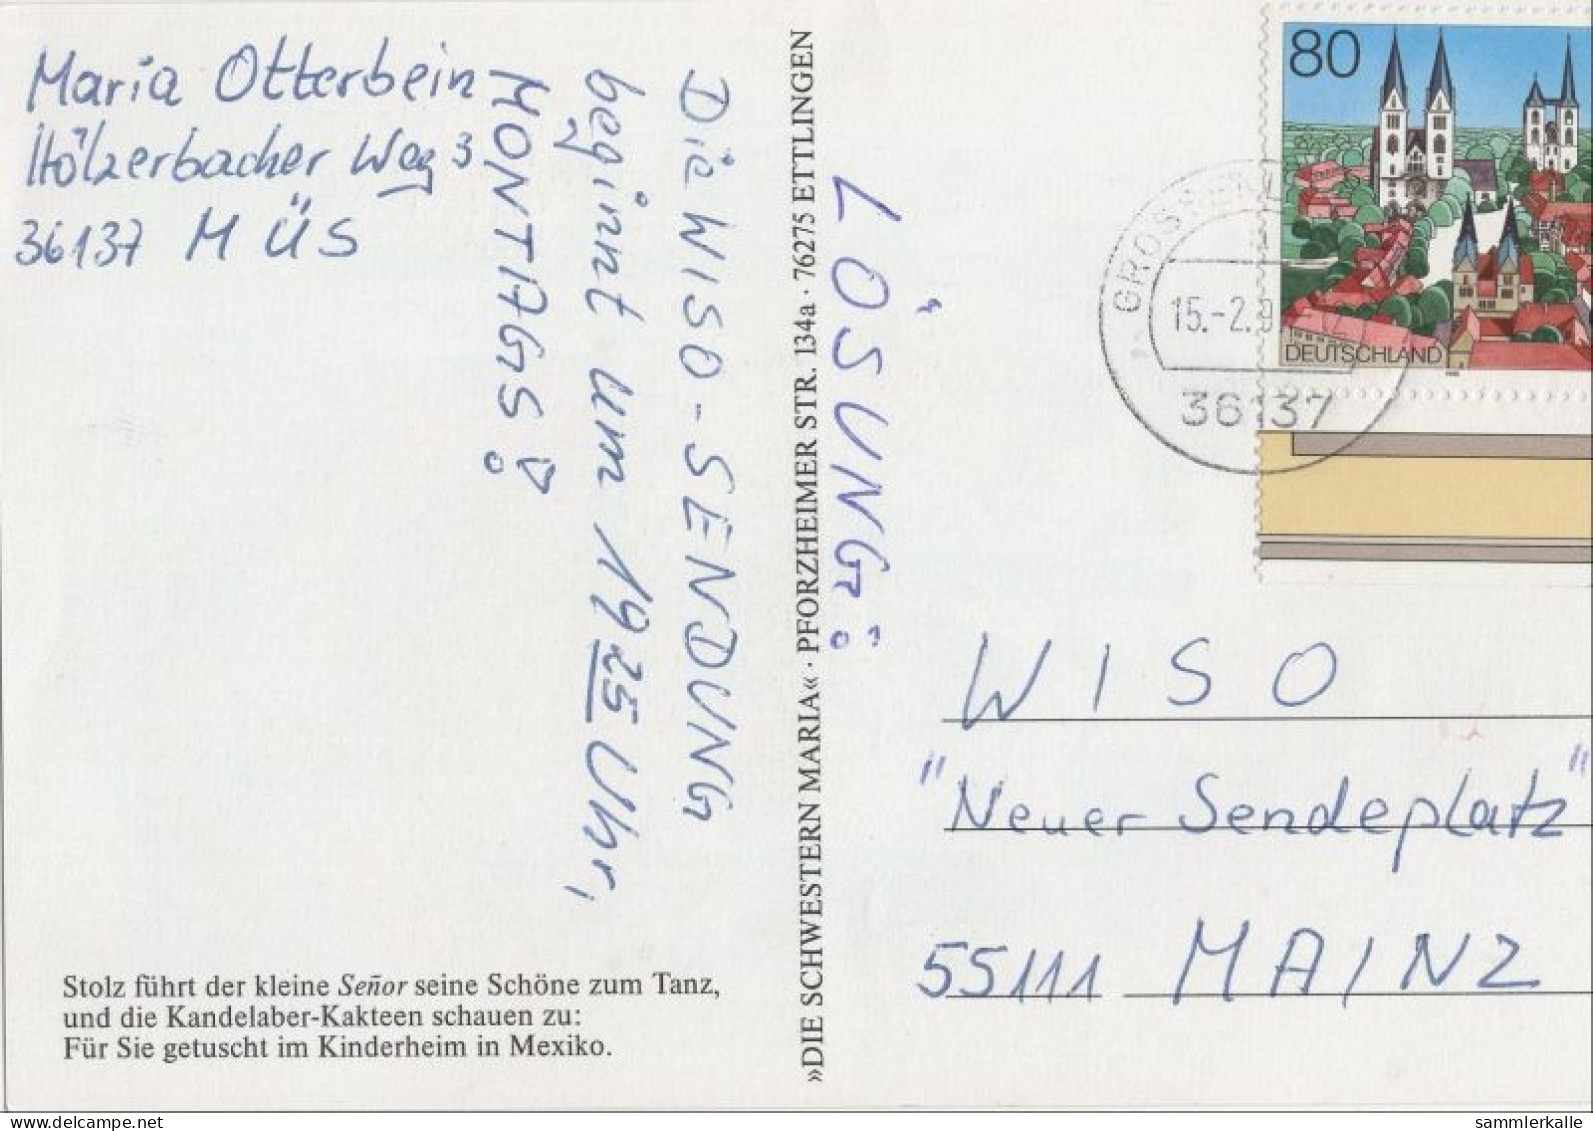 Maria Otterbein
Hölzerbacher Weg 3
36137 MÜS
Die WISO-SENDUNG
beginnt um 19 25 Uhr,
MONTAGS!
Stolz führt der kleine Señor seine Schöne zum Tanz,
und die Kandelaber-Kakteen schauen zu:
Für Sie getuscht im Kinderheim in Mexiko.
»DIE SCHWESTERN MARIA« · PFORZHEIMER STR. 134a · 76275 ETTLINGEN
LÖSUNG:
80
DEUTSCHLAND
15.-2.9
36137
WISO
"Neuer Sendeplatz"
55111 MAINZ
www.delcampe.net
sammlerkalle